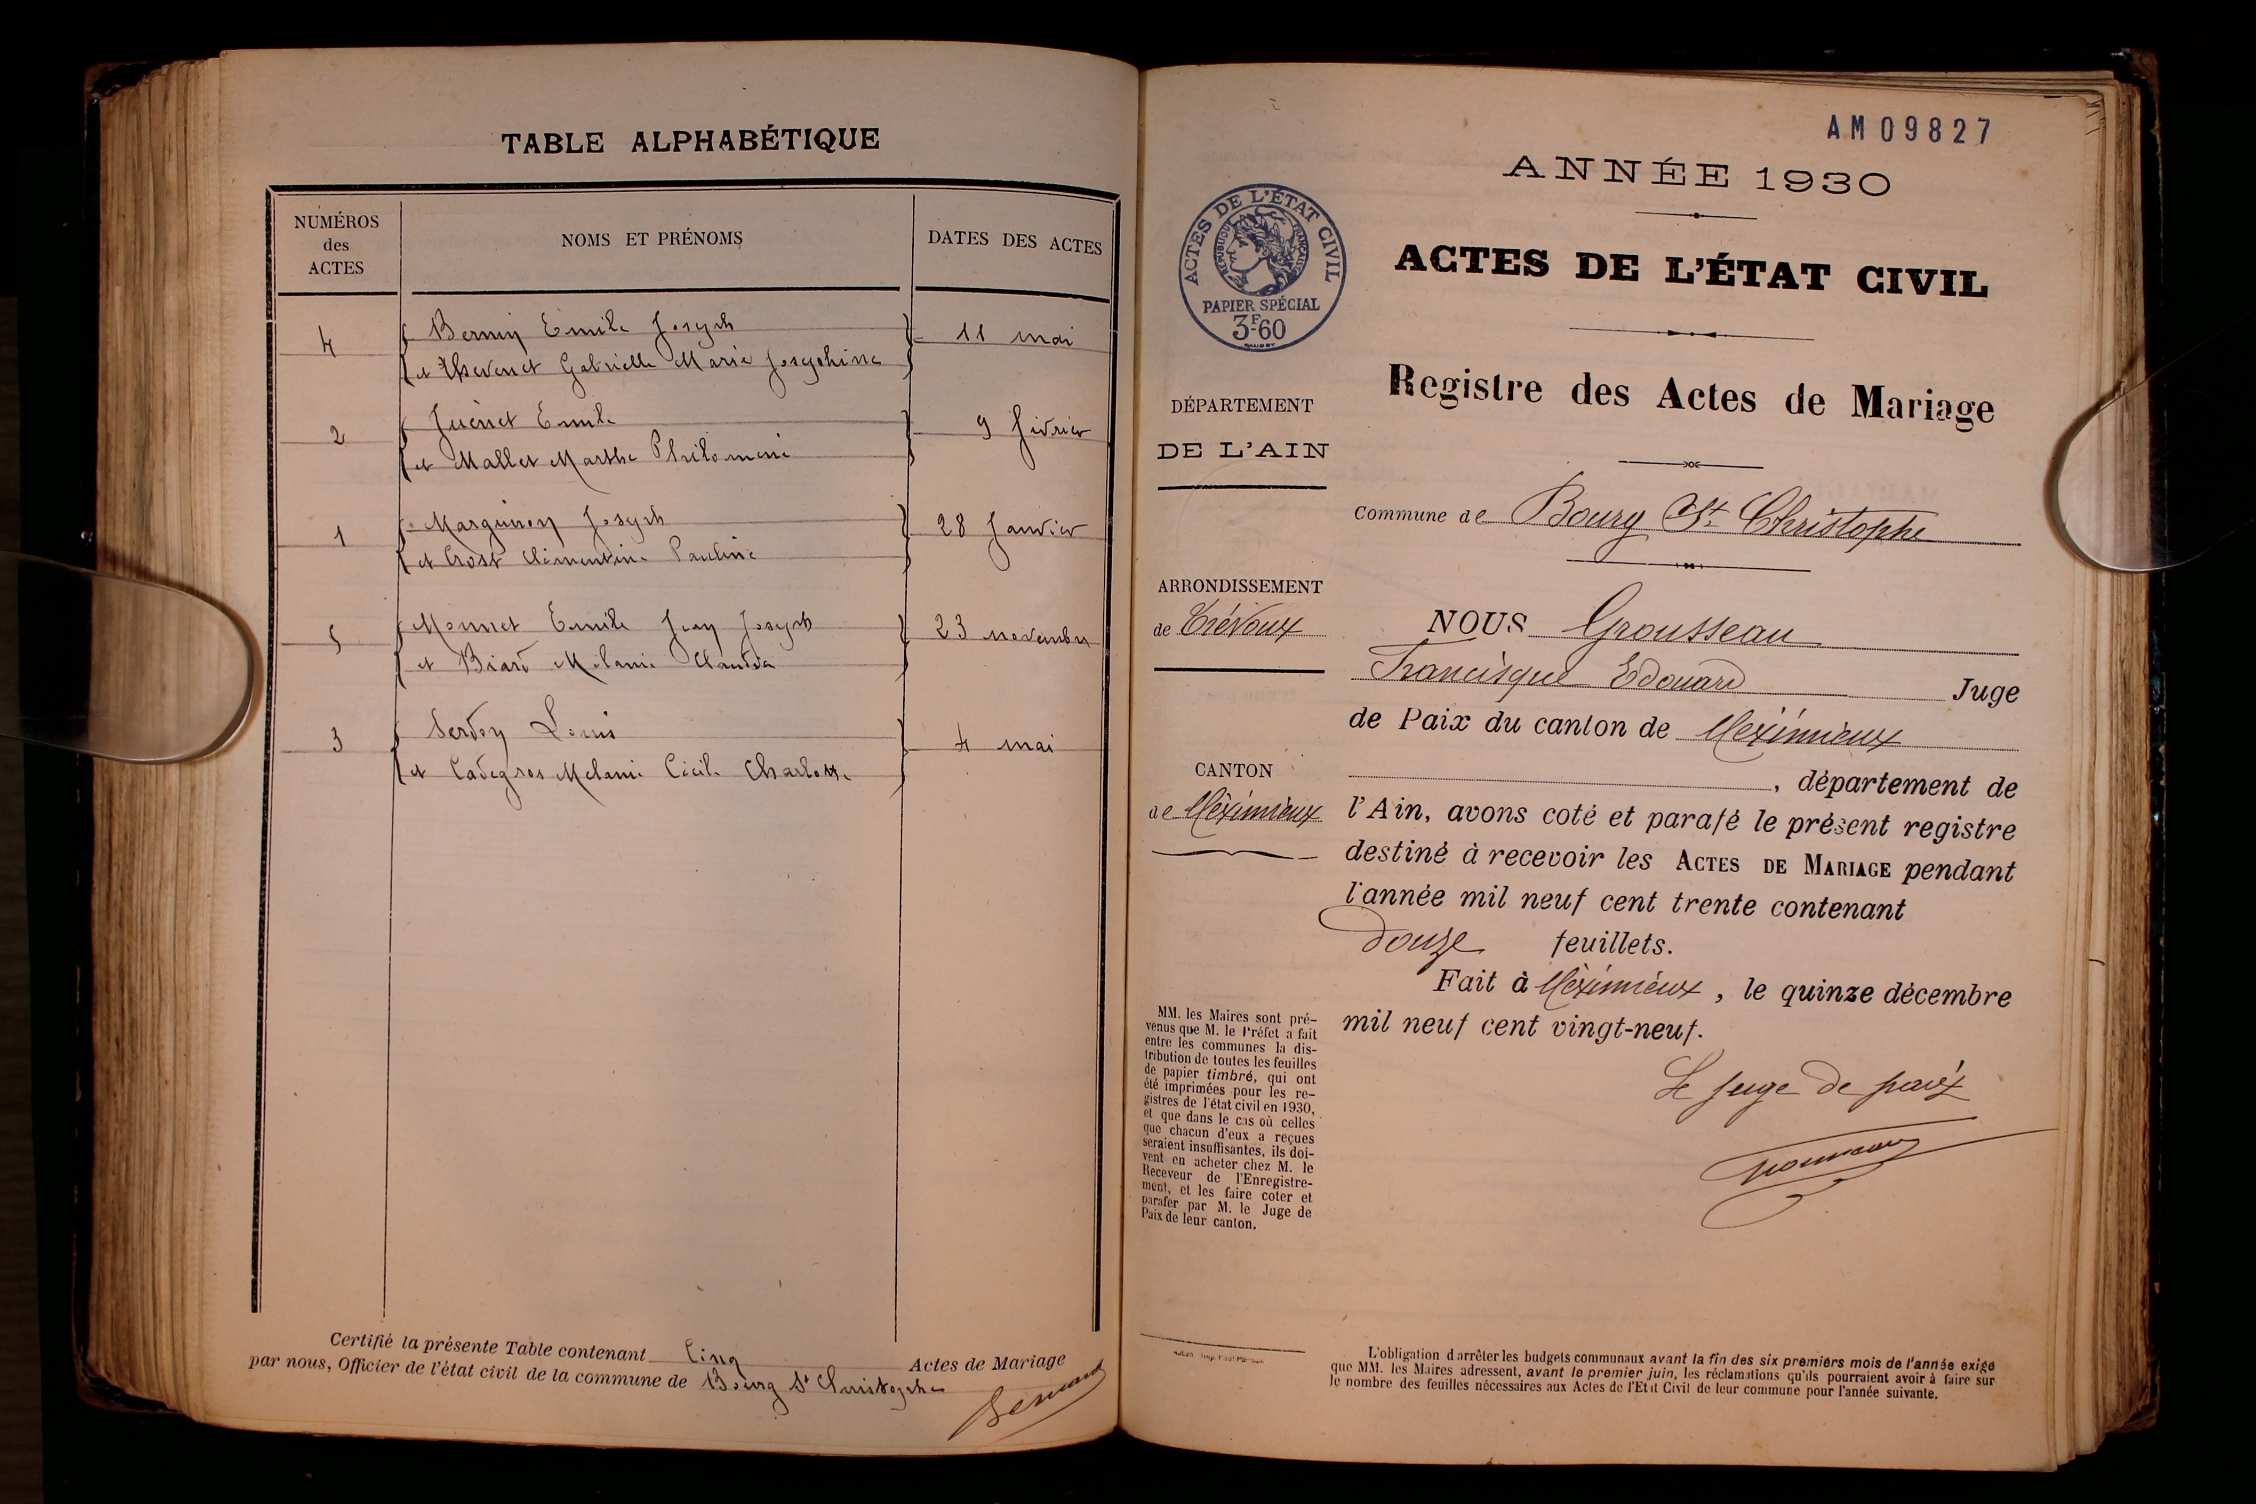 TABLE ALPHABÉTIQUE
NUMÉROS
des
ACTES
NOMS ET PRÉNOMS
DATES DES ACTES
4
Bernin Emile Joseph
et Thevenet Gabrielle Marie Josephine
11 mai
2
Juénet Emile
et Mallet Marthe Philomene
9 fevrier
1
Marguinon Joseph
et Crost Clémentine Pauline
28 Janvier
5
Monnet Emile Jean Joseph
et Biard Melanie Claudia
23 novembre
3
Serdon Louis
et Cadegros Melanie Cécile Charlotte
4 mai
Certifié la présente Table contenant Cinq Actes de Mariage
par nous, Officier de l'état civil de la commune de Bourg St Christophe
AM09827
ANNÉE 1930
ACTES DE L'ÉTAT CIVIL
RÉPUBLIQUE FRANÇAISE
PAPIER SPÉCIAL
3F-60
ACTES DE L'ÉTAT CIVIL
Registre des Actes de Mariage
DÉPARTEMENT
DE L'AIN
Commune de Bourg St Christophe
ARRONDISSEMENT
de Trévoux
CANTON
de Méximieux
NOUS Grousseau
Francisque Edouard Juge
de Paix du canton de Meximieux
, département de
l'Ain, avons coté et parafé le présent registre
destiné à recevoir les ACTES DE MARIAGE pendant
l'année mil neuf cent trente contenant
douze feuillets.
Fait à Méximieux, le quinze décembre
mil neuf cent vingt-neuf.
Le juge de paix
MM. les Maires sont pré-
venus que M. le Préfet a fait
entre les communes la dis-
tribution de toutes les feuilles
de papier timbré, qui ont
été imprimées pour les re-
gistres de l'état civil en 1930,
et que dans le cas où celles
que chacun d'eux a reçues
seraient insuffisantes, ils doi-
vent en acheter chez M. le
Receveur de l'Enregistre-
ment, et les faire coter et
parafer par M. le Juge de
Paix de leur canton.
L'obligation d'arrêter les budgets communaux avant la fin des six premiers mois de l'année exige
que MM. les Maires adressent, avant le premier juin, les réclamations qu'ils pourraient avoir à faire sur
le nombre des feuilles nécessaires aux Actes de l'Etat Civil de leur commune pour l'année suivante.